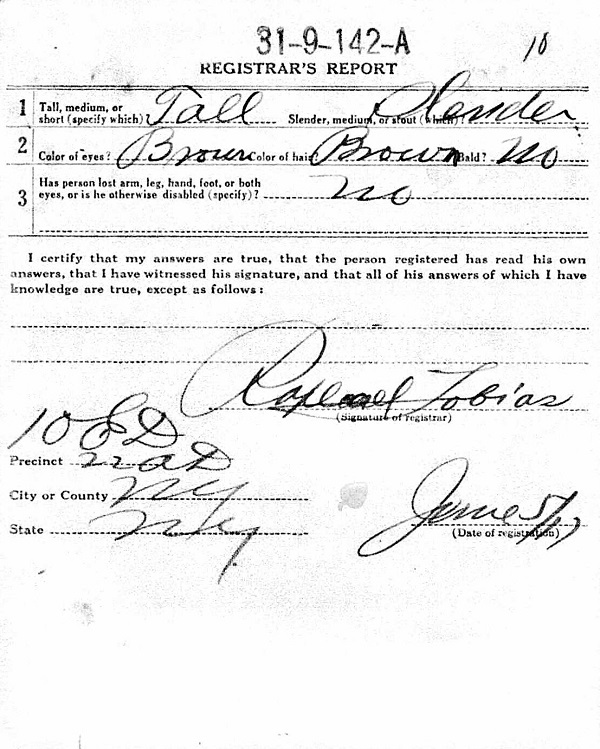 31-9-142-A 10
REGISTRAR'S REPORT
1 Tall, medium, or
short (specify which)? Tall Slender, medium, or stout (which)? Slender
2 Color of eyes? Brown Color of hair? Brown Bald? No
3 Has person lost arm, leg, hand, foot, or both
eyes, or is he otherwise disabled (specify)? no
I certify that my answers are true, that the person registered has read his own
answers, that I have witnessed his signature, and that all of his answers of which I have
knowledge are true, except as follows:
Raphael Tobias
(Signature of registrar)
10 ED
Precinct 22 AD
City or County NY
State NY
June 5/17
(Date of registration)